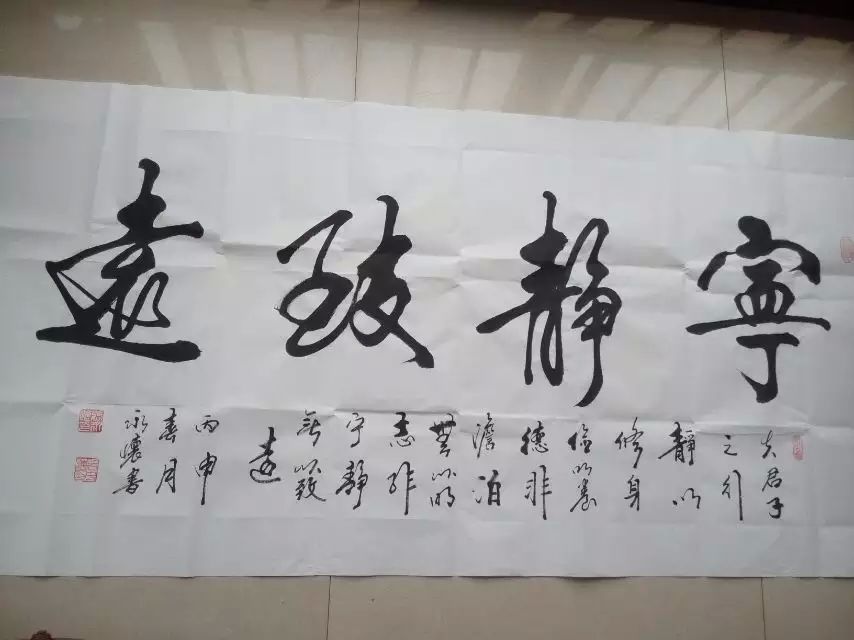 寧靜致遠
夫君子
之行
靜以
修身
儉以養
德非
澹泊
無以明
志非
宁靜
無以致
遠
丙申
春月
永懷書